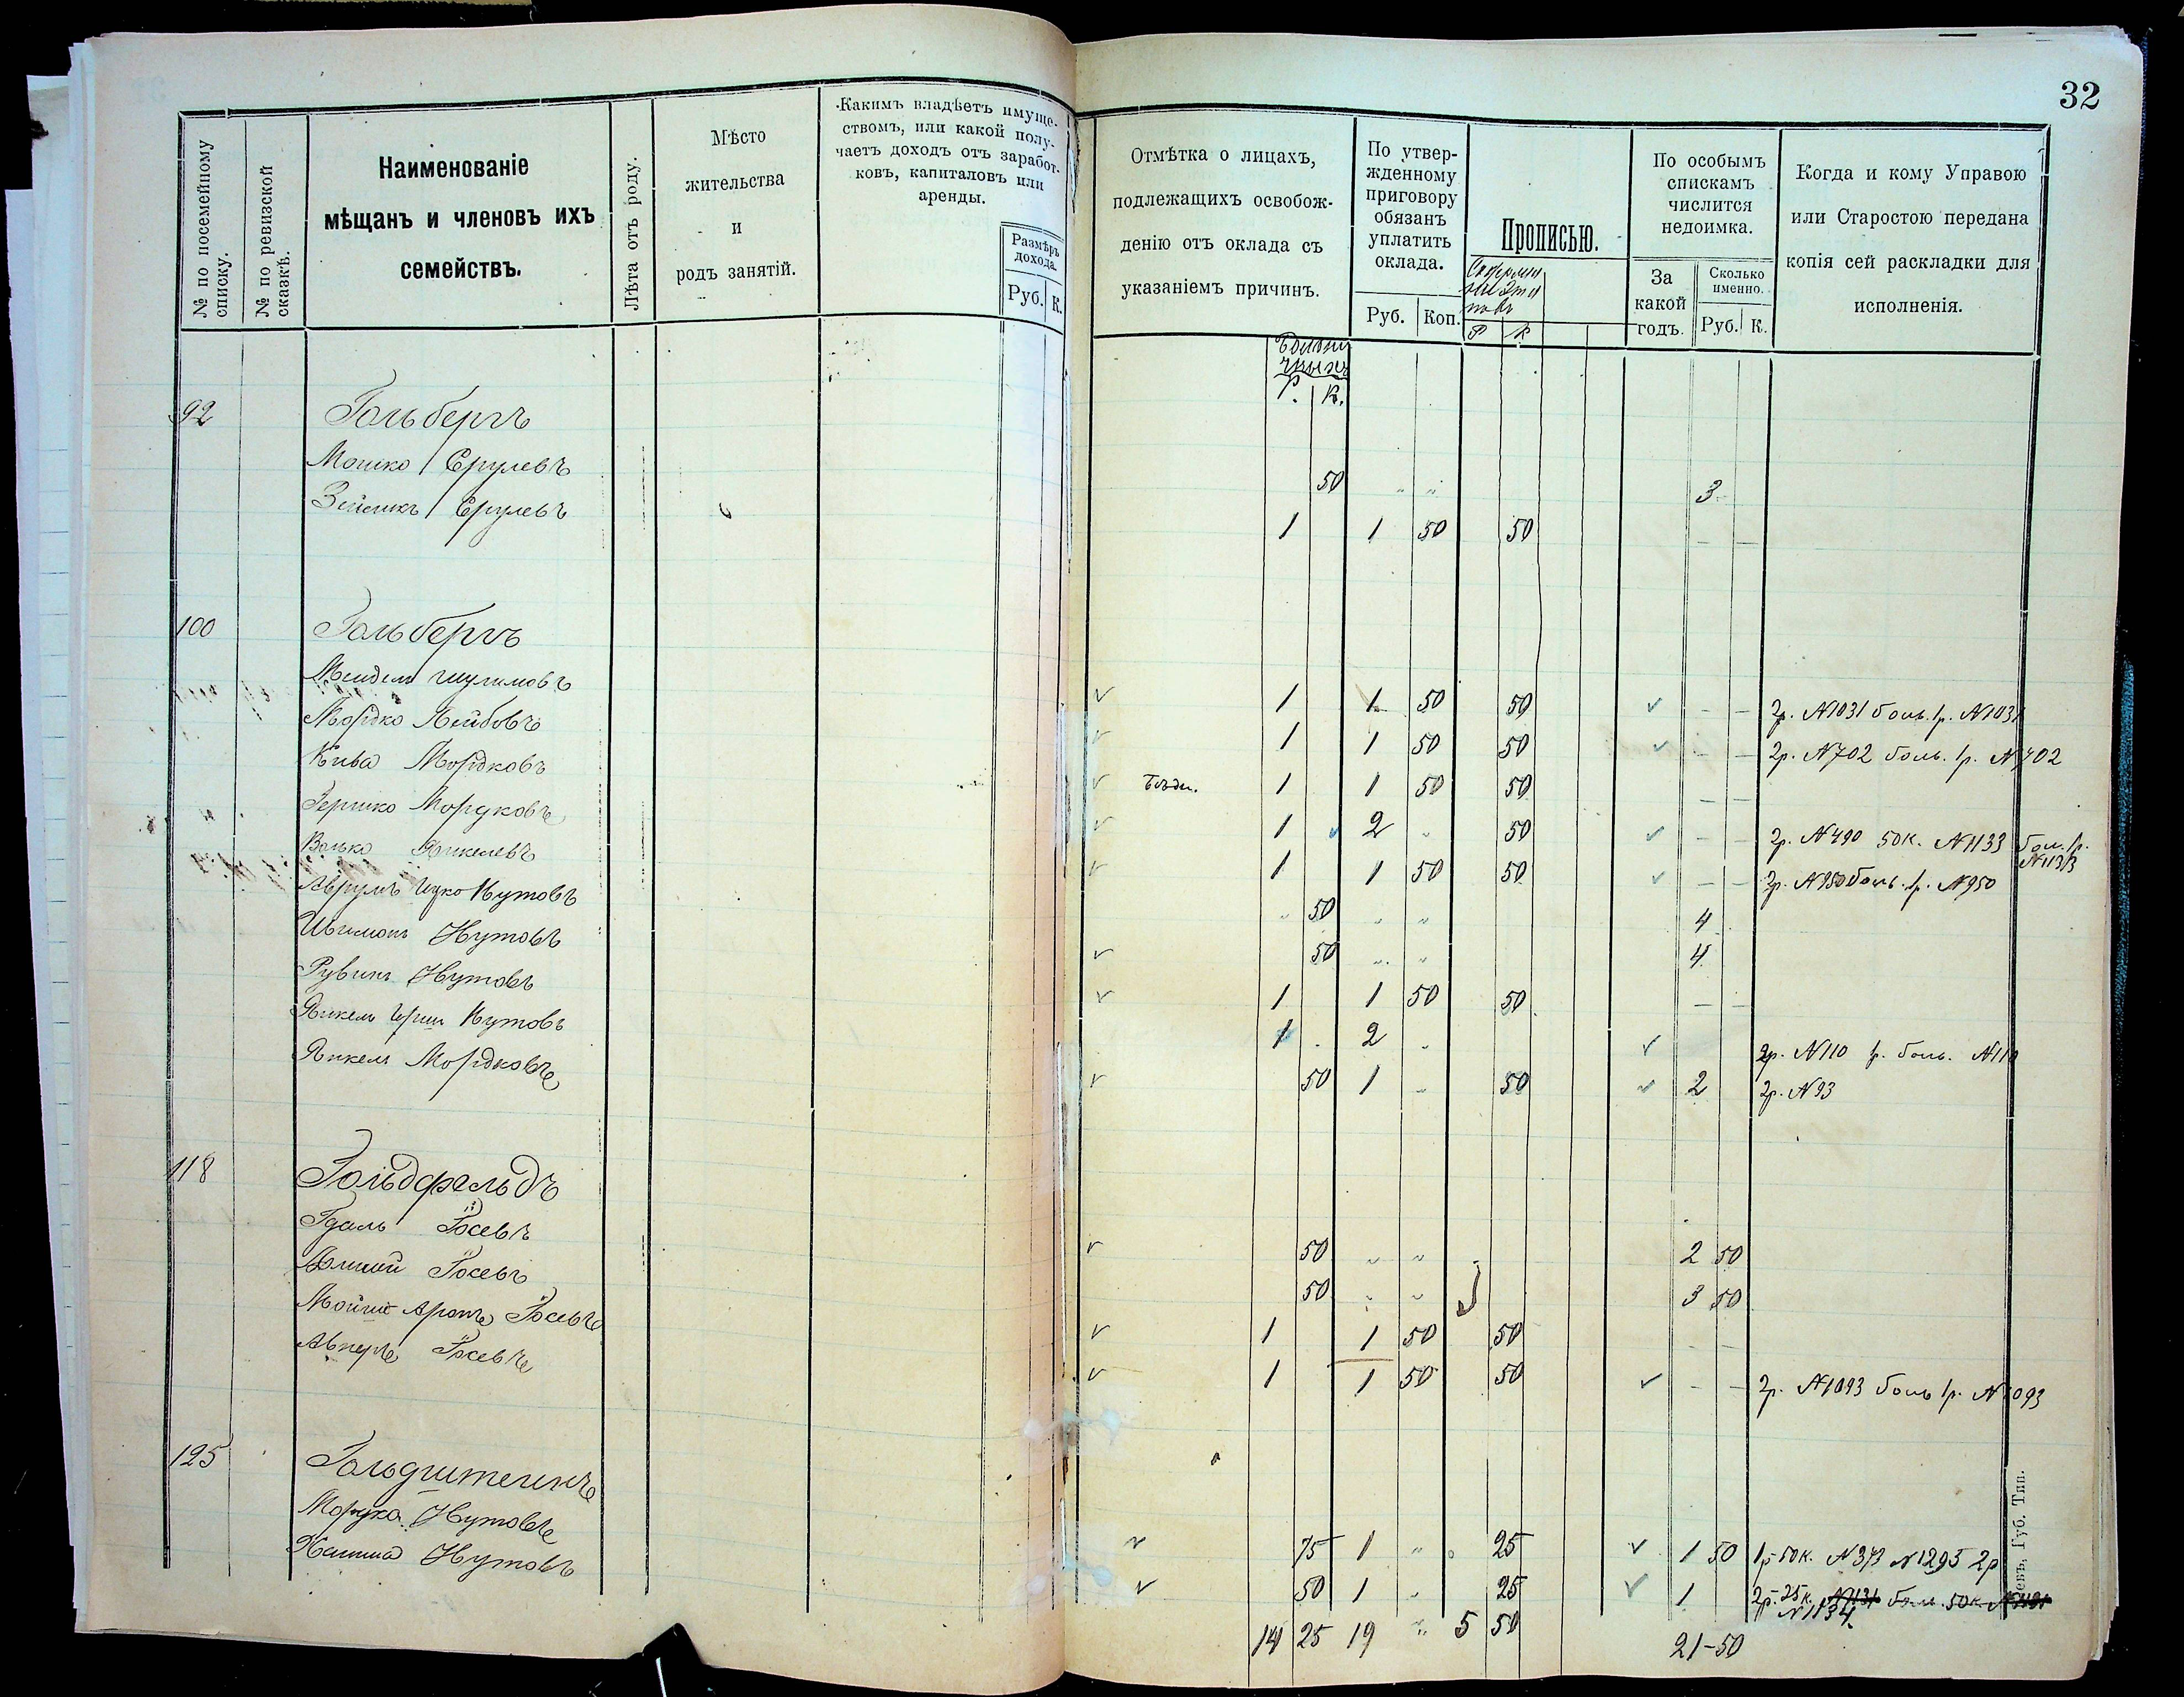 32
№ по посемейному списку.
№ по ревизской сказкѣ.
Наименованіе
мѣщанъ и членовъ ихъ
семействъ.
Лѣта отъ роду.
Мѣсто
жительства
и
родъ занятій.
Какимъ владѣетъ имуще-
ствомъ, или какой полу-
чаетъ доходъ отъ заработ-
ковъ, капиталовъ или
аренды.
Размѣръ
дохода.
Руб. К.
Отмѣтка о лицахъ,
подлежащихъ освобож-
денію отъ оклада съ
указаніемъ причинъ.
По утвер-
жденному
приговору
обязанъ
уплатить
оклада.
Руб. Коп.
Прописью.
Р К
По особымъ
спискамъ
числится
недоимка.
За
какой
годъ.
Сколько
именно.
Руб. К.
Когда и кому Управою
или Старостою передана
копія сей раскладки для
исполненія.
Больни
чныхъ
Р. К.
92 Гольбергъ
Мошко Срулевъ 50 " " 3
Зейликъ Срулевъ 1 1 50 50 — —
100 Гольбергъ
Мендель Шулимовъ 1 1 50 50 — — 2р. №1031 боль. 1р. №1031
Мордко Лейбовъ 1 1 50 50 — — 2р. №702 боль. 1р. №702
Кива Мордковъ Бѣдн. 1 1 50 50 — —
Гершко Мордковъ 1 2 " 50 — — 2р. №490 50к. №1133 бол. 1р.
№1133
Волько Янкелевъ 1 1 50 50 — — 2р. №950 боль. 1р. №950
Аврумъ Ицко Нутовъ " 50 " " 4
Нутовъ 50 " " 4
Рувинъ Нутовъ 1 1 50 50 — —
Янкель Герш Нутовъ 1 2 " 2р. №110 1р. боль. №110
Янкель Мордковъ 50 1 " 50 2 2р. №93
118 Гольдфельдъ
Гдаль Іосевъ 50 " " 2 50
Іосевъ 50 " " 3 50
Мойше Аронъ Іосевъ 1 1 50 50 — —
Авнеръ Іосевъ 1 1 50 50 — — 2р. №1093 боль 1р. №1093
125 Гольдштейнъ
Мордко Нутовъ 75 1 " 25 1 50 1р 50к. №373 №1295 2р
Нутовъ 50 1 " 25 1 2р. 25к. №1131 бол. 50к
№1134
14 25 19 " 5 50 21-50
Губ. Тип.